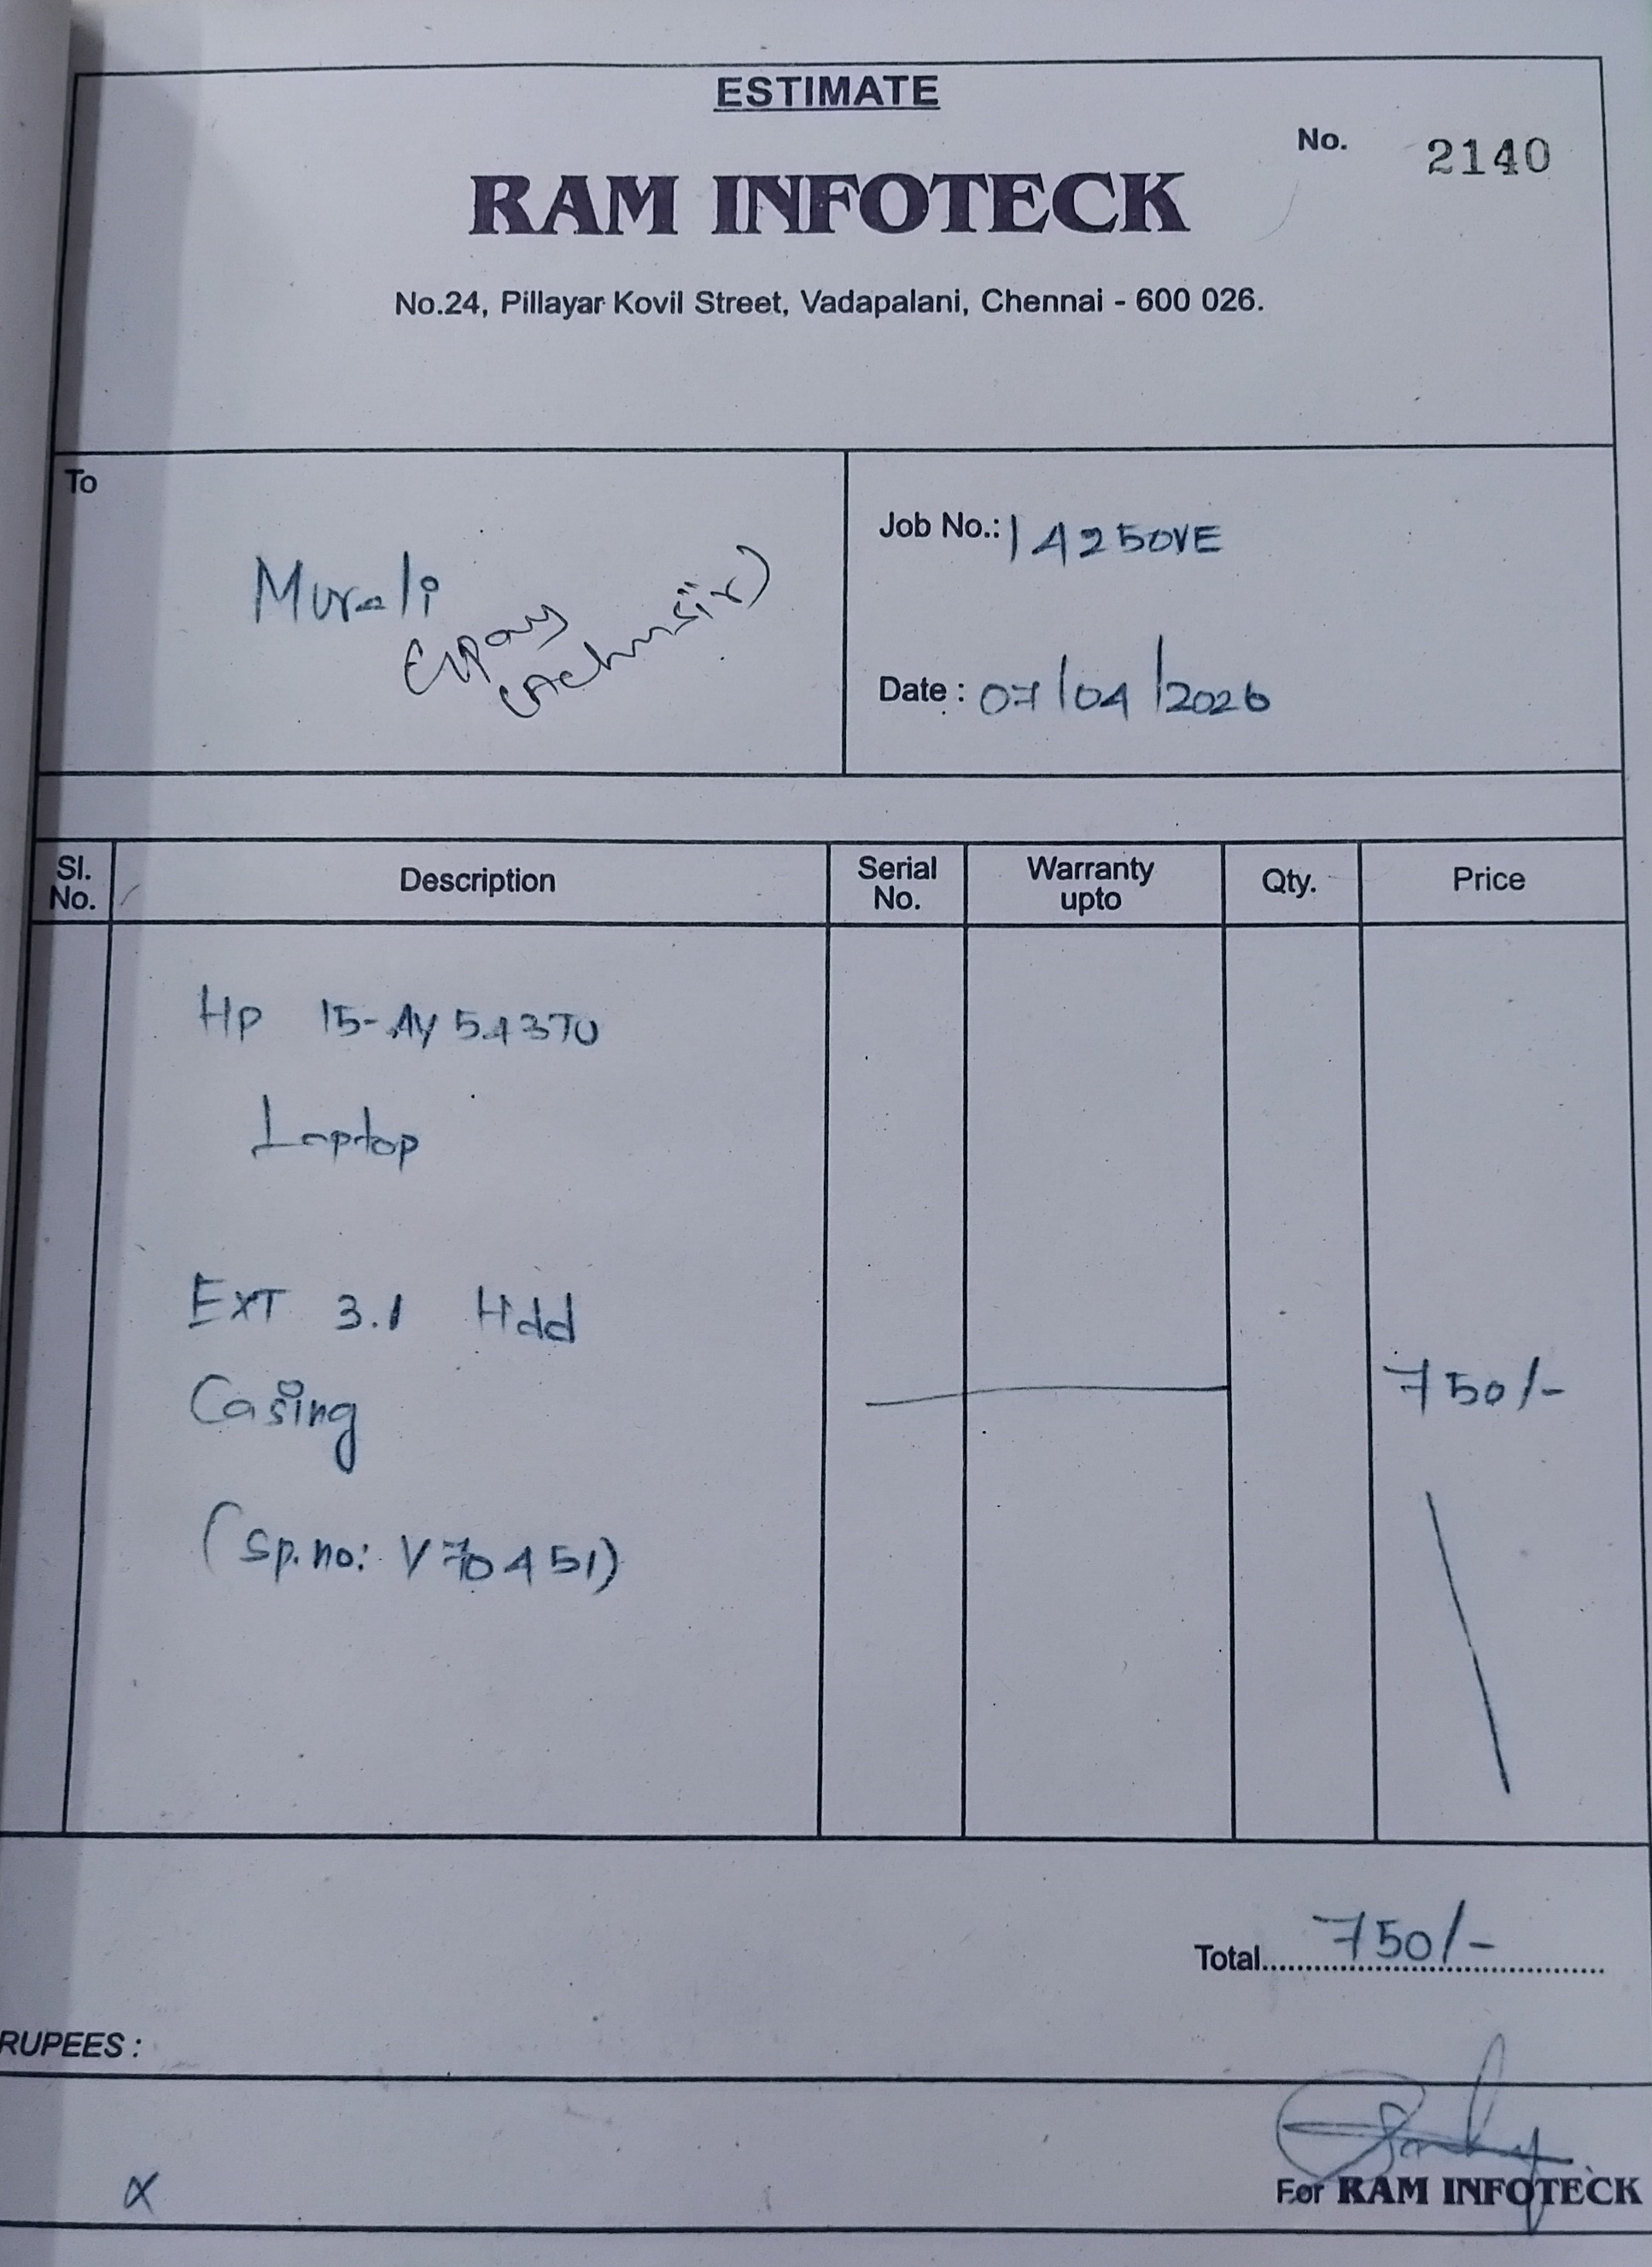 ESTIMATE
No. 2140
RAM INFOTECK
No.24, Pillayar Kovil Street, Vadapalani, Chennai - 600 026.
To
Murali
Job No.: 14250VE
Date : 07/04/2026
Sl. No. Description Serial No. Warranty upto Qty. Price
Hp 15-AY543TU
Laptop
EXT 3.1 Hdd
Casing 750/-
(Sp.no: V70451)
Total 750/-
RUPEES :
For RAM INFOTECK